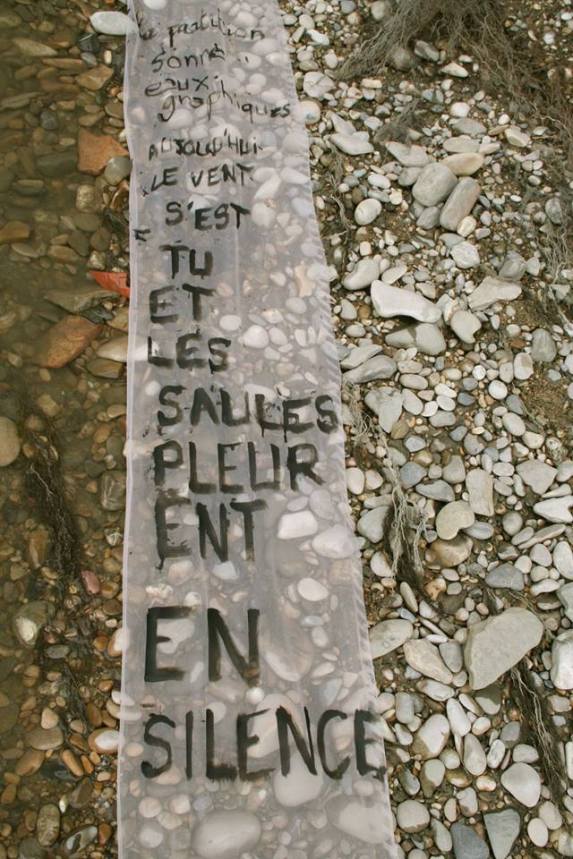 la partition
sonne..
eaux.
graphiques
AUJOURD'HUI
LE VENT
S'EST
TU
ET
LES
SAULES
PLEUR
ENT
EN
SILENCE